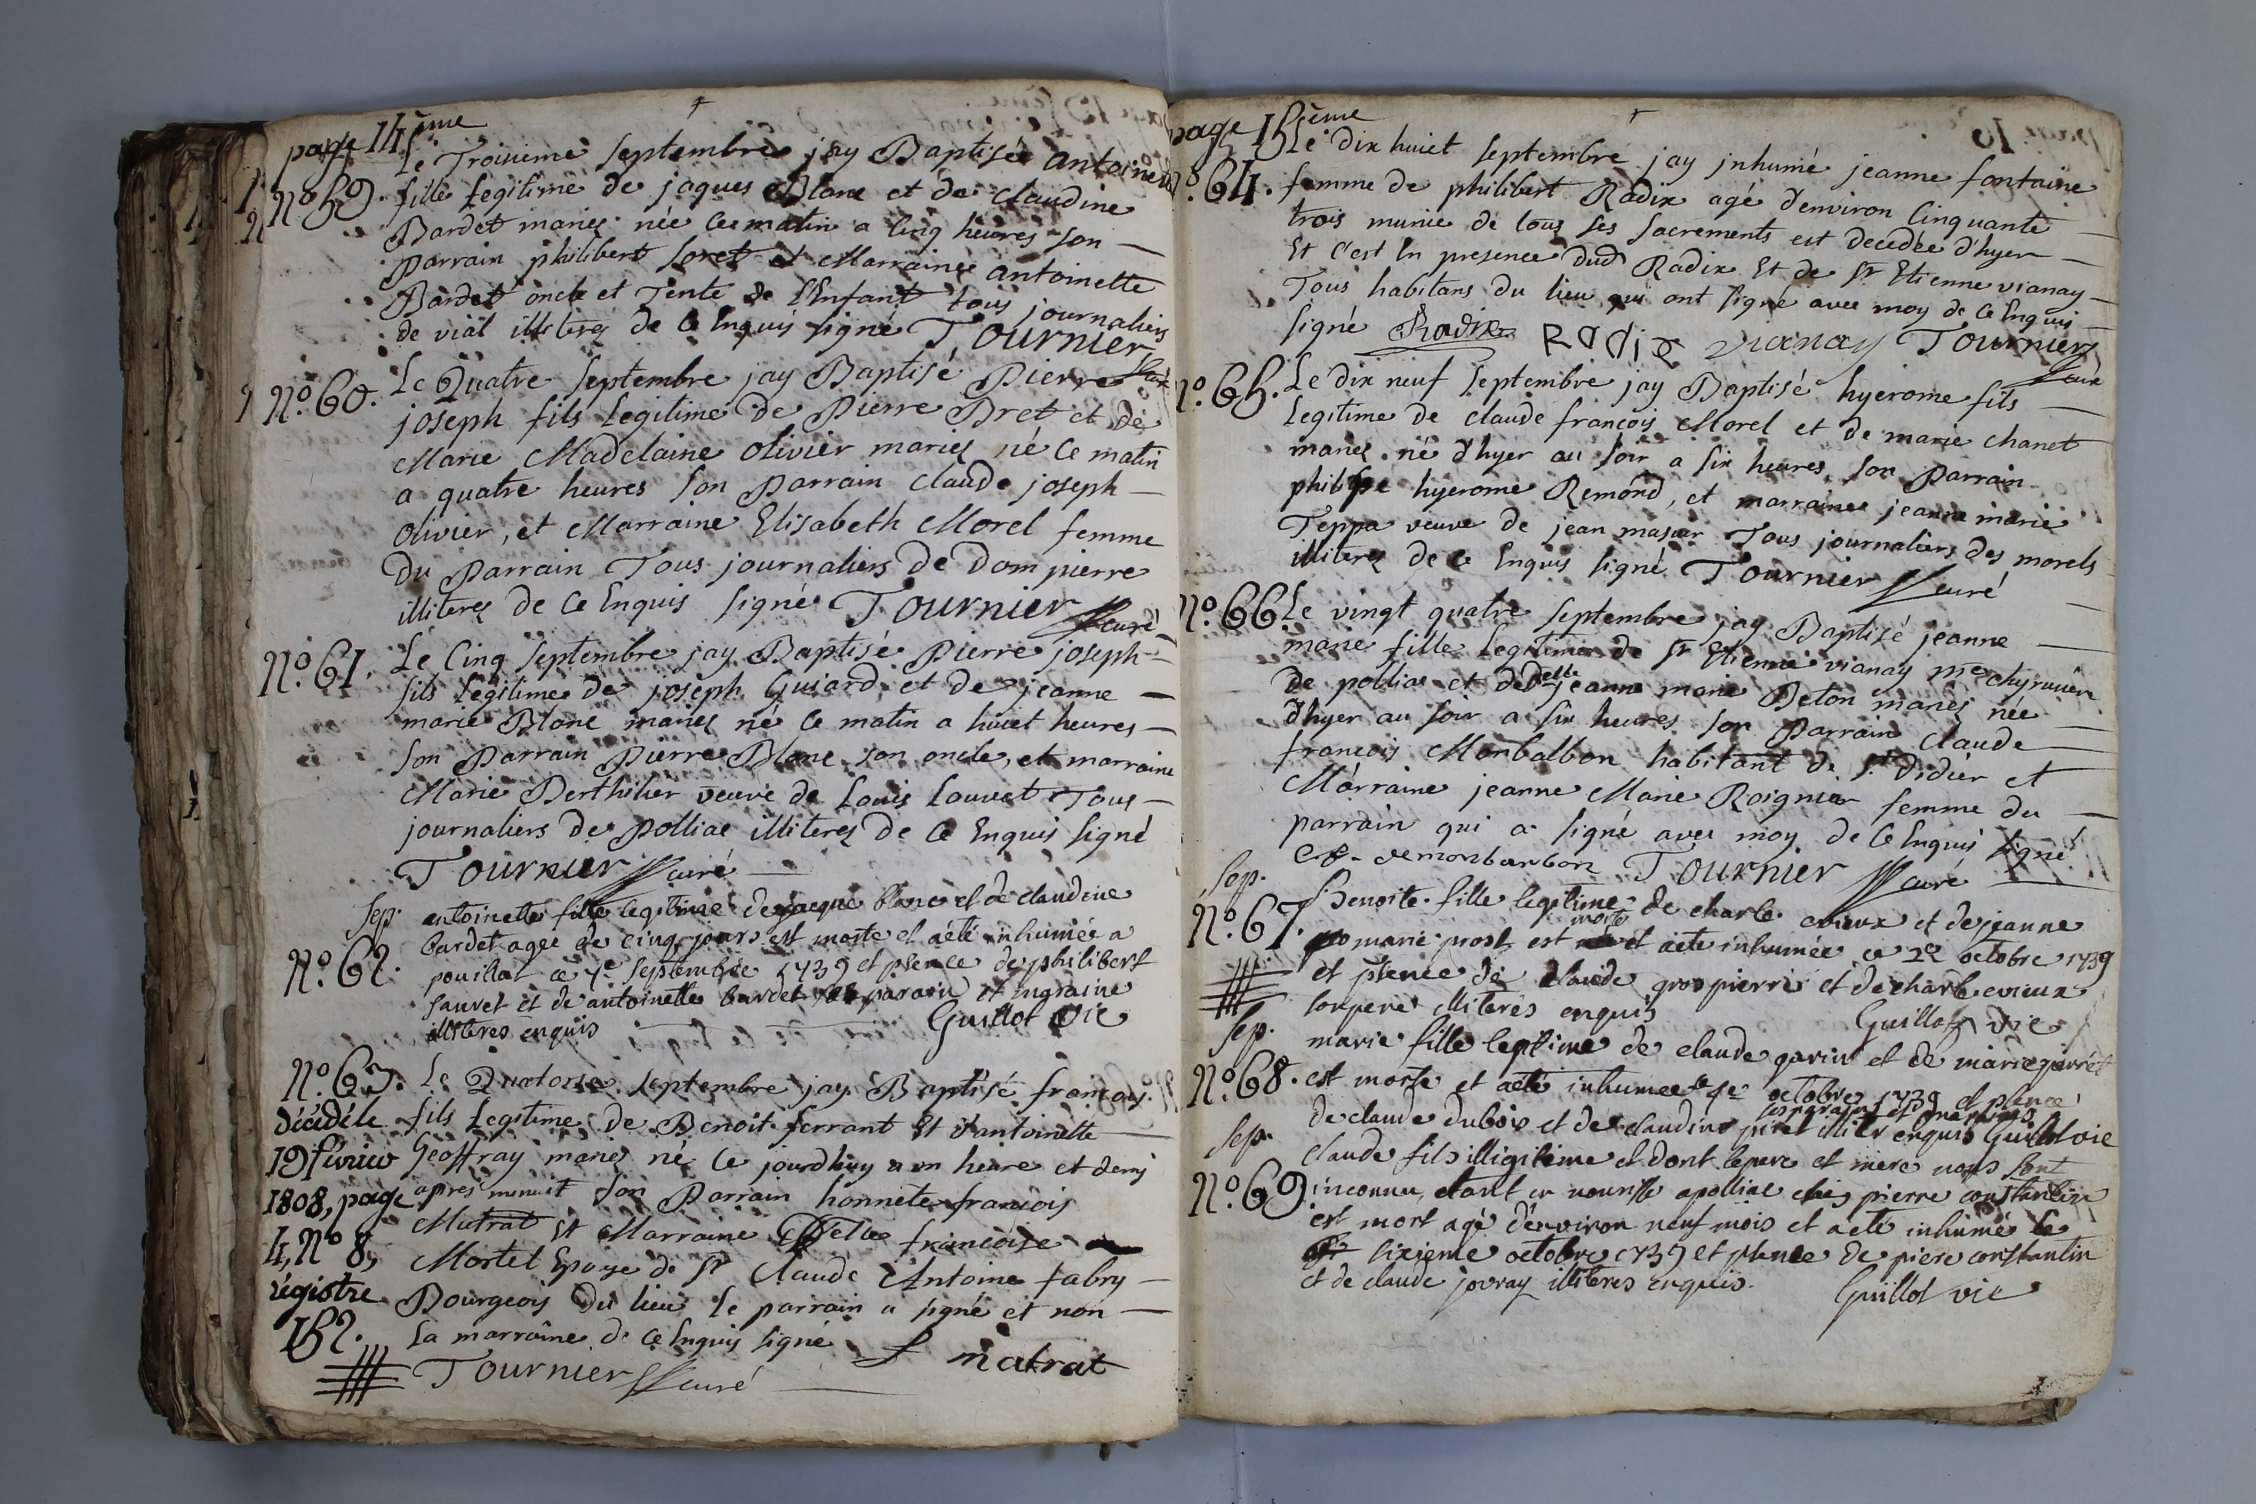 page 14ème
Le Troisieme Septembre jay Baptisée antoinette
N.º 59. fille Legitime de jaques Blanc et de Claudine
Bardet mariez née ce matin a cinq heures son
parrain philibert Soret et Marraine antoinette
Bardet oncle et Tente de l'Enfant tous journaliers
de vial illiterez de ce Enquis signé Tournier curé
N.º 60. Le Quatre Septembre jay Baptisé Pierre
joseph fils Legitime de Pierre Dret et de
Marie Madelaine olivier mariez né ce matin
a quatre heures son Parrain claude joseph
olivier, et Marraine Elisabeth Morel femme
du Parrain Tous journaliers de dompierre
illiterez de ce Enquis signé Tournier curé
N.º 61. Le Cinq Septembre jay Baptisé Pierre joseph
fils Legitime de joseph Guiard et de jeanne
marie Blanc mariez né ce matin a huict heures
son Parrain Pierre Blanc son oncle, et marraine
Marie Berthilier veuve de Louis Louvet Tous
journaliers de Polliac illiterez de ce Enquis signé
Tournier curé
Sep. antoinette fille legitime de jacque blanc et de claudine
bardet agee de cinq jours est morte et a été inhumée a
N.º 62. pouillat ce 7e septembre 1739 et plence de philibert
sauret et de antoinette bardet ses parain et mgraine
illiteres enquis Guillot vie
N.º 63. Le Quatorse Septembre jay Baptisé françois
décédé le fils Legitime de Benoit ferrant Et d'antoinette
19 fivrier Geoffray mariez né ce jourdhuy a un heure et demj
1808, page apres minuit son Parrain honnete francois
4, Nº 8, Mutrat Et Marraine Delle francoise
régistre Mortel Epouse de Sr Claude Antoine fabry
152. Bourgeois du lieu le parrain a signé et non
la marraine de ce Enquis signé
Tournier curé f matrat
page 15ème
Le dix huict Septembre jay jnhumé jeanne fontaine
º. 64. femme de philibert Radix agé d'environ Cinquante
trois munie de tous ses Sacrements est decedée d'hyer
Et c'est En presence dud Radix Et de Sr Etienne vianay
Tous habitans du lieu qui ont signé avec moy de ce Enquis
signé Radix Radix vianay Tournier curé
Nº. 65. Le dix neuf Septembre jay Baptisé hyerome fils
Legitime de claude françois Morel et de marie chanet
mariez né d'hyer au soir a six heures, son Parrain
philippe hyerome Remond, et marraine jeanne marie
Teppa veuve de jean masuer Tous journaliers des morels
illiterez de ce Enquis signé Tournier curé
Nº. 66. Le vingt quatre Septembre jay Baptisé jeanne
marie fille Legitime de Sr Etienne vianay me chyrurien
de polliac et de Delle jeanne marie Beton mariez née
d'hyer au soir a six heures son Parrain Claude
françois Monbalbon habitant de St didier et
Marraine jeanne Marie Roignier femme du
parrain qui a signé avec moy de ce Enquis signé
demonbarbon Tournier curé
Sep. Benoite fille legitime de charle evieux et de jeanne
N.º 67. marie prost est morte et a ete inhumée ce 2e octobre 1739
et plence de claude grospierre et de charle evieux
son pere illiteres enquis Guillot vie
Sep. marie fille legitime de claude garin et de marie
N.º 68. est morte et a été inhumee le 4e octobre 1739 et plence
de claude dubois et de claudine piret ses parains et maraines illiter enquis Guillot vie
Sep. claude fils illigitime et dont le pere et mere nous sont
N.º 69. inconnu, etant en nourisse a polliac chez pierre constantin
est mort agé d'environ neuf mois et a ete inhumé le
sixieme octobre 1739 et plence de piere constantin
et de claude jovray illiteres enquis. Guillot vie